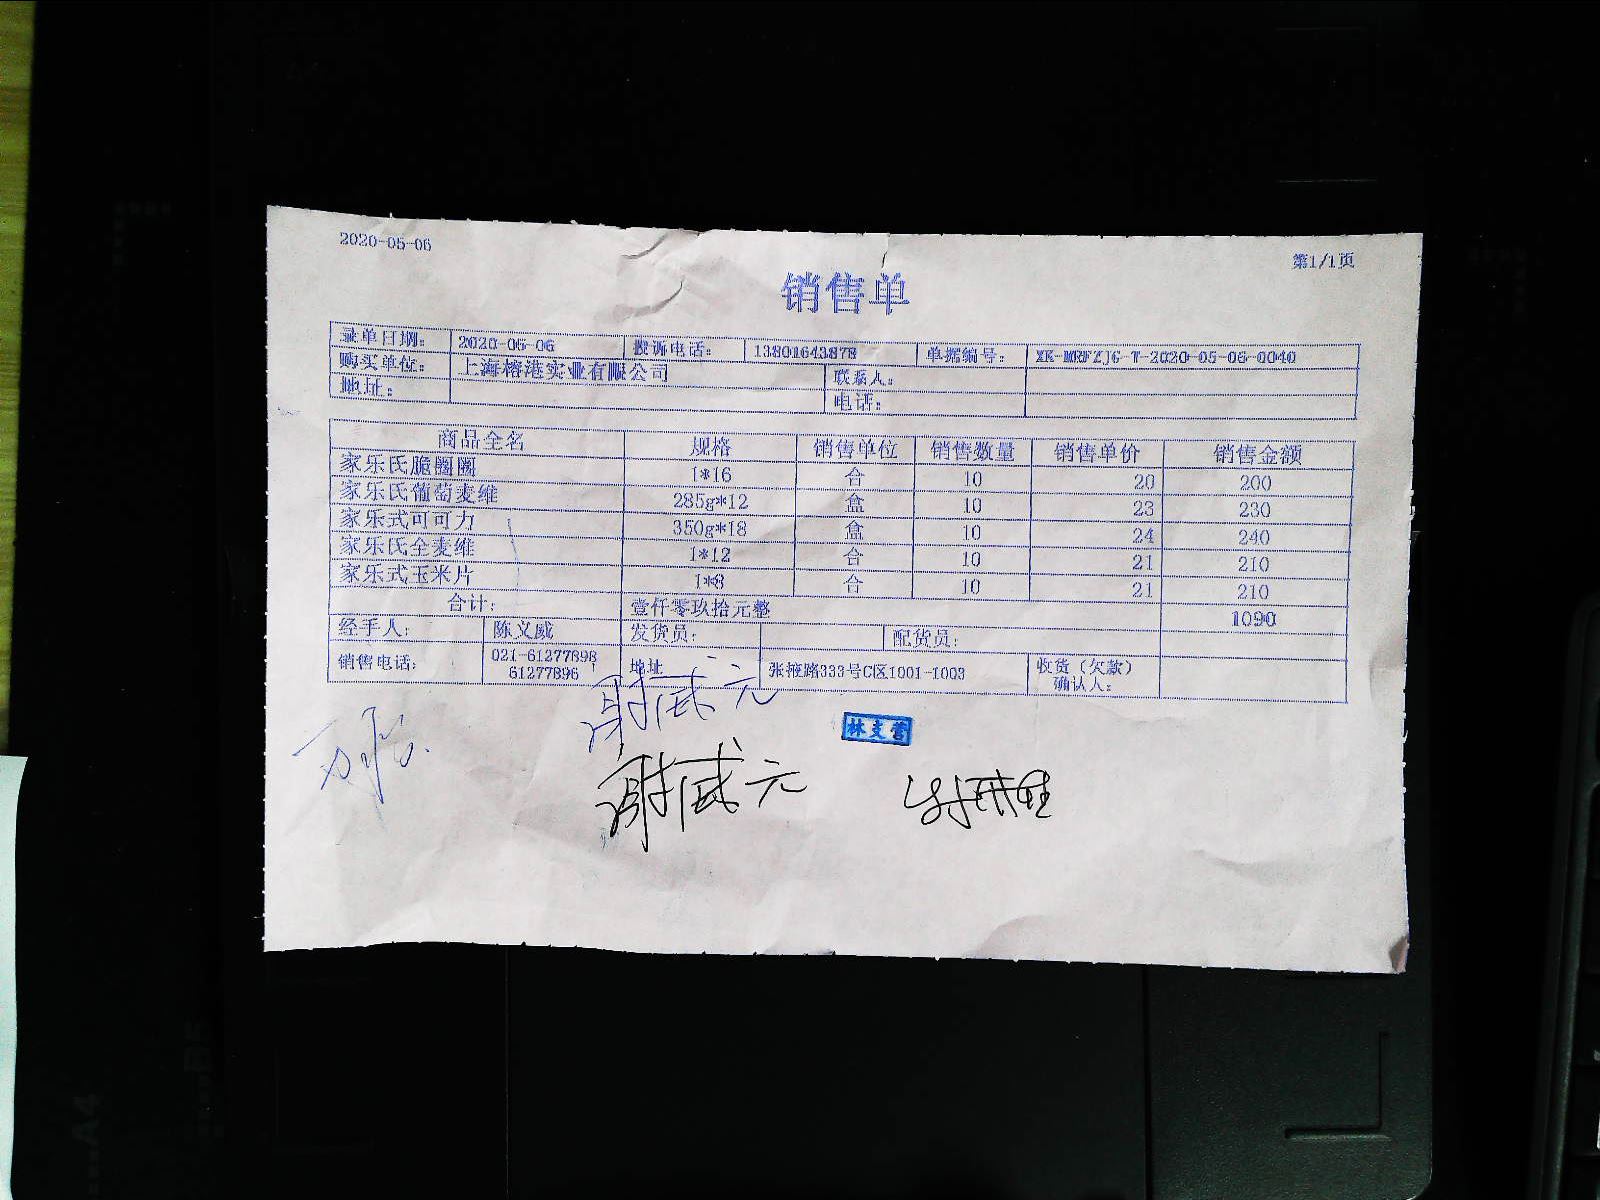 2020-05-06
第1/1页
销售单
录单日期: 2020-05-06 投诉电话: 13801643878 单据编号: XK-MRFZJG-T-2020-05-06-0040
购买单位: 上海榕港实业有限公司 联系人:
地址: 电话:
商品全名 规格 销售单位 销售数量 销售单价 销售金额
家乐氏脆圈圈 1*16 合 10 20 200
家乐氏葡萄麦维 285g*12 盒 10 23 230
家乐式可可力 350g*18 盒 10 24 240
家乐氏全麦维 1*12 合 10 21 210
家乐式玉米片 1*8 合 10 21 210
合计: 壹仟零玖拾元整 1090
经手人: 陈义威 发货员: 配货员:
销售电话: 021-61277898 61277896 地址 张掖路333号C区1001-1003 收货(欠款)确认人:
谢威元
林支营
谢威元